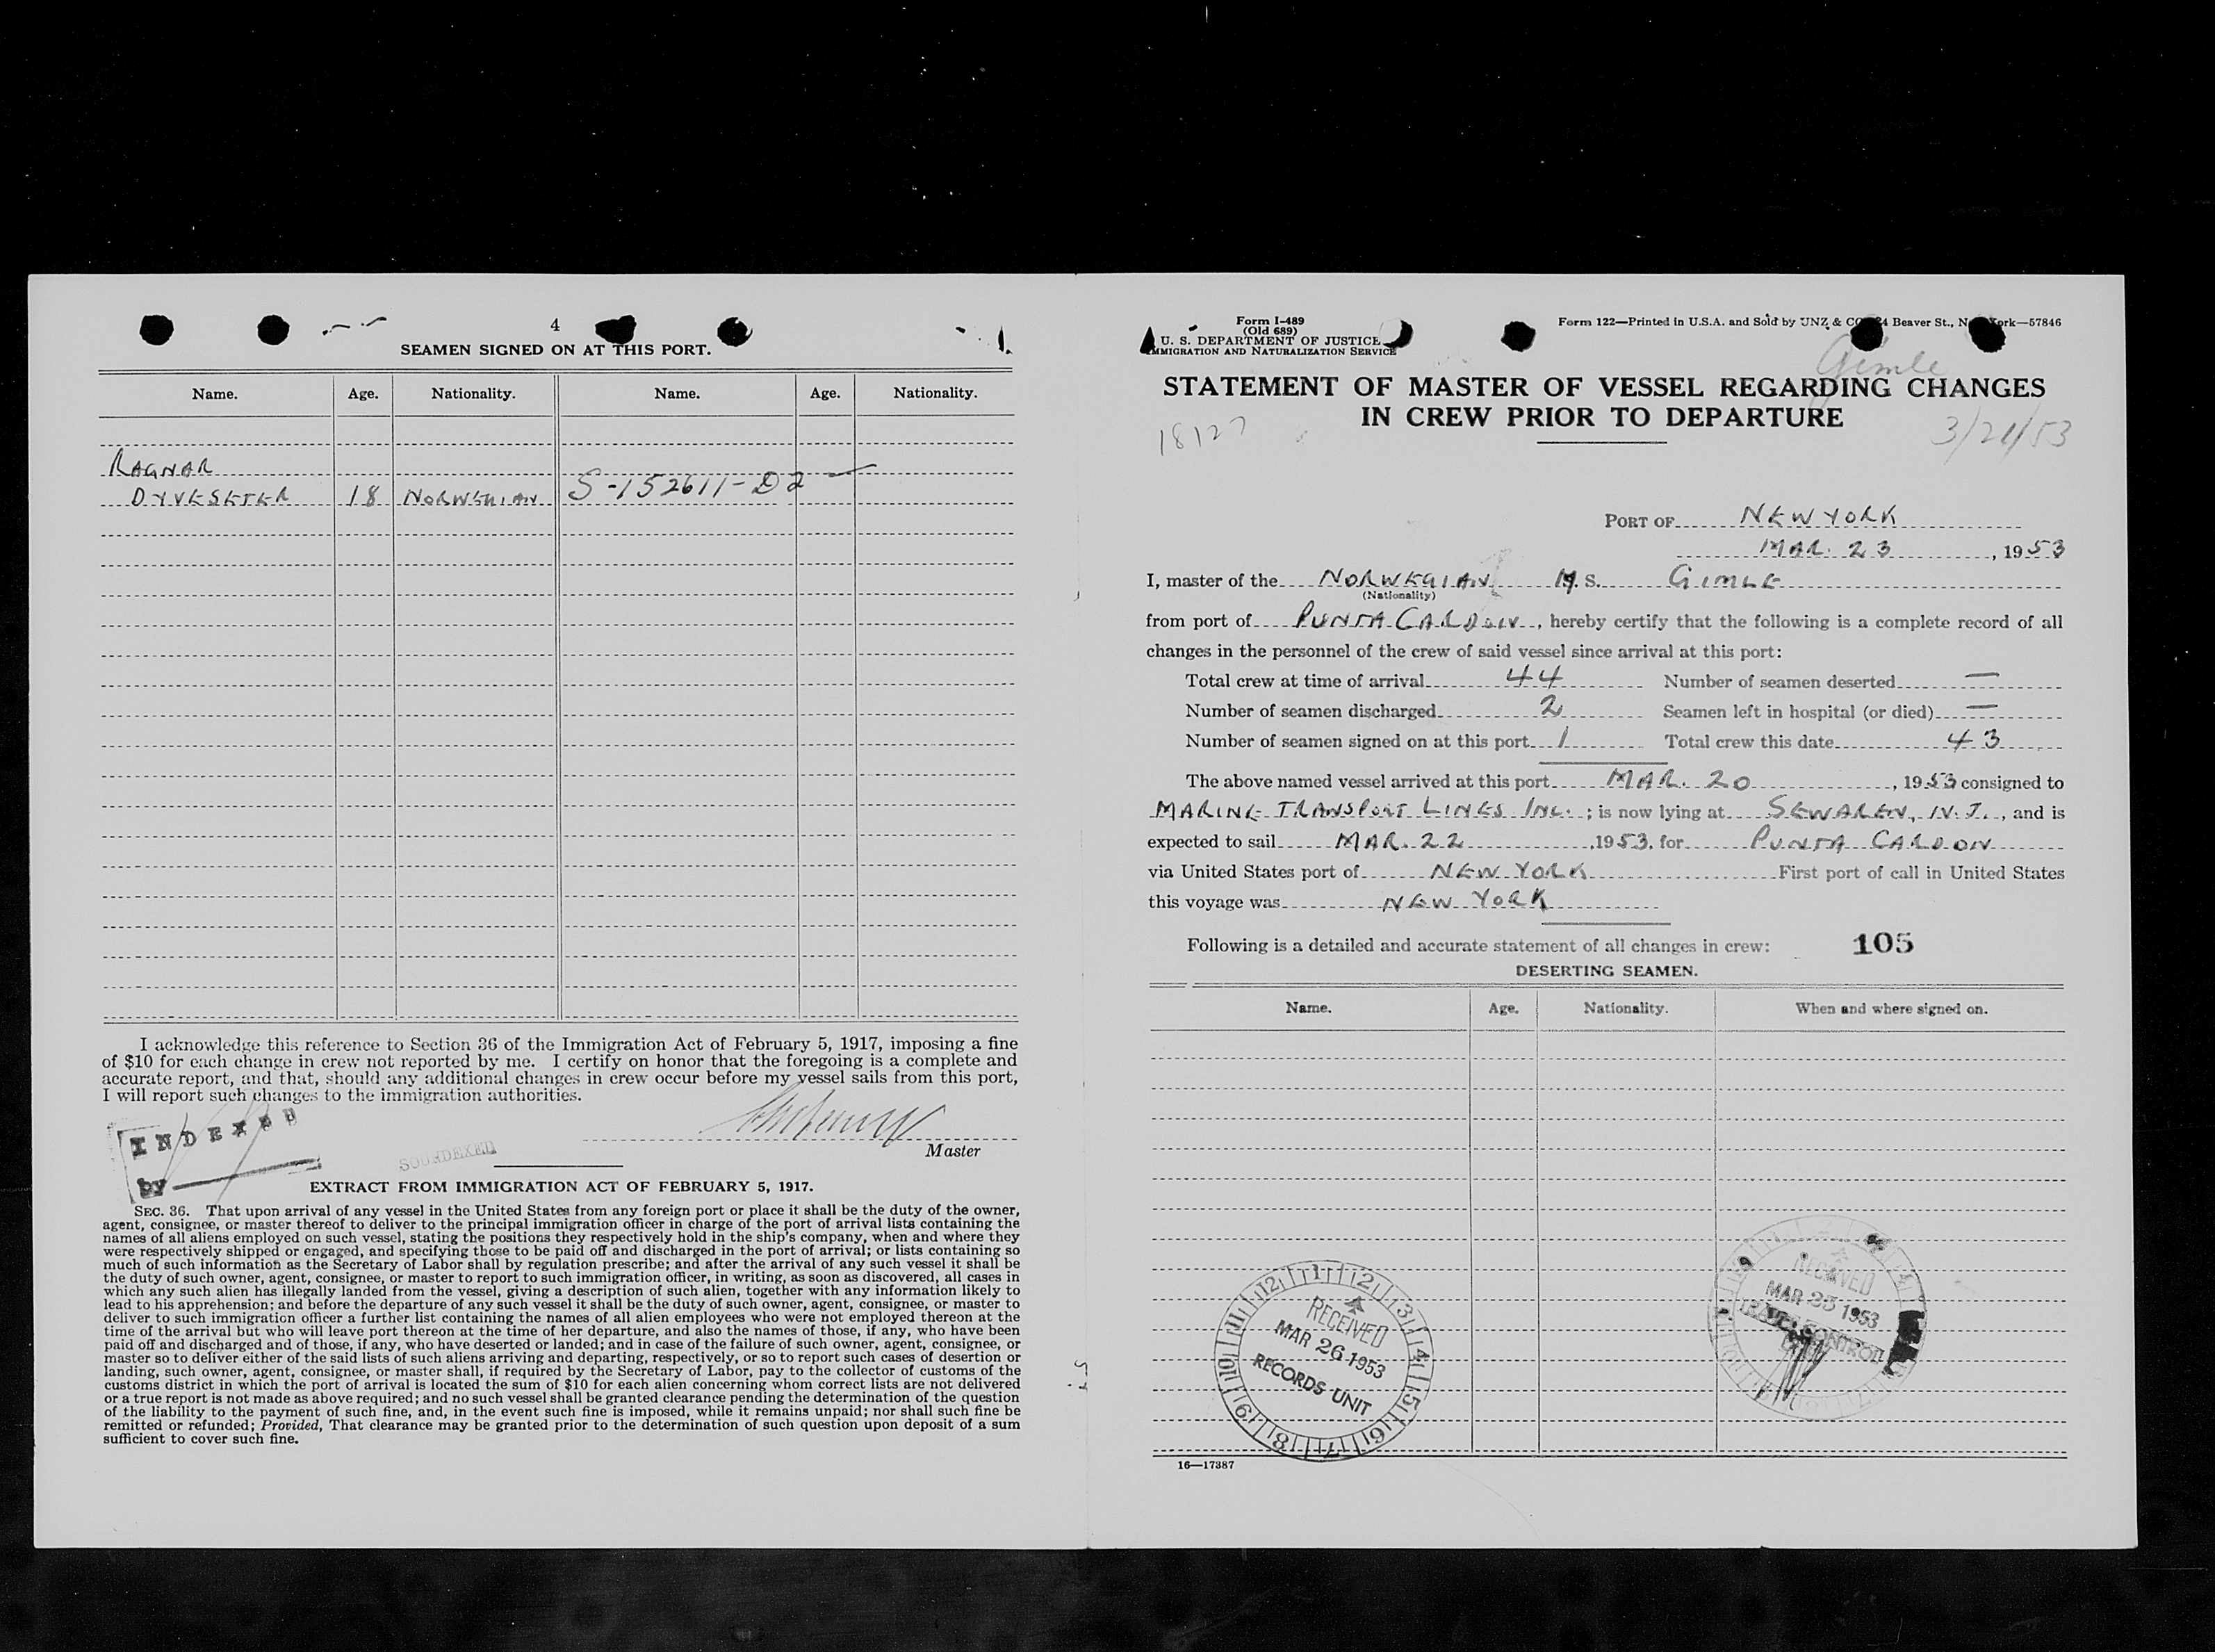 4
SEAMEN SIGNED ON AT THIS PORT.
Name. Age. Nationality. Name. Age. Nationality.
RAGNAR
DYVESETER 18 NORWEGIAN S-152611-D2
I acknowledge this reference to Section 36 of the Immigration Act of February 5, 1917, imposing a fine
of $10 for each change in crew not reported by me. I certify on honor that the foregoing is a complete and
accurate report, and that, should any additional changes in crew occur before my vessel sails from this port,
I will report such changes to the immigration authorities.
INDEXED
by
SOUNDEXED
Master
EXTRACT FROM IMMIGRATION ACT OF FEBRUARY 5, 1917.
SEC. 36. That upon arrival of any vessel in the United States from any foreign port or place it shall be the duty of the owner,
agent, consignee, or master thereof to deliver to the principal immigration officer in charge of the port of arrival lists containing the
names of all aliens employed on such vessel, stating the positions they respectively hold in the ship's company, when and where they
were respectively shipped or engaged, and specifying those to be paid off and discharged in the port of arrival; or lists containing so
much of such information as the Secretary of Labor shall by regulation prescribe; and after the arrival of any such vessel it shall be
the duty of such owner, agent, consignee, or master to report to such immigration officer, in writing, as soon as discovered, all cases in
which any such alien has illegally landed from the vessel, giving a description of such alien, together with any information likely to
lead to his apprehension; and before the departure of any such vessel it shall be the duty of such owner, agent, consignee, or master to
deliver to such immigration officer a further list containing the names of all alien employees who were not employed thereon at the
time of the arrival but who will leave port thereon at the time of her departure, and also the names of those, if any, who have been
paid off and discharged and of those, if any, who have deserted or landed; and in case of the failure of such owner, agent, consignee, or
master so to deliver either of the said lists of such aliens arriving and departing, respectively, or so to report such cases of desertion or
landing, such owner, agent, consignee, or master shall, if required by the Secretary of Labor, pay to the collector of customs of the
customs district in which the port of arrival is located the sum of $10 for each alien concerning whom correct lists are not delivered
or a true report is not made as above required; and no such vessel shall be granted clearance pending the determination of the question
of the liability to the payment of such fine, and, in the event such fine is imposed, while it remains unpaid; nor shall such fine be
remitted or refunded; Provided, That clearance may be granted prior to the determination of such question upon deposit of a sum
sufficient to cover such fine.
Form I-489
(Old 689)
U. S. DEPARTMENT OF JUSTICE
IMMIGRATION AND NATURALIZATION SERVICE
Form 122—Printed in U.S.A. and Sold by UNZ & CO 24 Beaver St., New York—57846
Gimle
STATEMENT OF MASTER OF VESSEL REGARDING CHANGES
IN CREW PRIOR TO DEPARTURE
18127
PORT OF NEW YORK
MAR. 23, 1953
I, master of the NORWEGIAN M. S. GIMLE
(Nationality)
from port of PUNTA CARDON, hereby certify that the following is a complete record of all
changes in the personnel of the crew of said vessel since arrival at this port:
Total crew at time of arrival 44 Number of seamen deserted —
Number of seamen discharged 2 Seamen left in hospital (or died) —
Number of seamen signed on at this port 1 Total crew this date 43
The above named vessel arrived at this port MAR. 20, 1953 consigned to
MARINE TRANSPORT LINES INC.; is now lying at SEWAREN, N.J., and is
expected to sail MAR. 22, 1953, for PUNTA CARDON
via United States port of NEW YORK First port of call in United States
this voyage was NEW YORK
Following is a detailed and accurate statement of all changes in crew: 105
DESERTING SEAMEN.
Name. Age. Nationality. When and where signed on.
12 1 2 3 4 5 6 7 8 9 10 11
RECEIVED
MAR 26 1953
RECORDS UNIT
RECEIVED
MAR 25 1953
TRAVEL CONTROL
16—17387